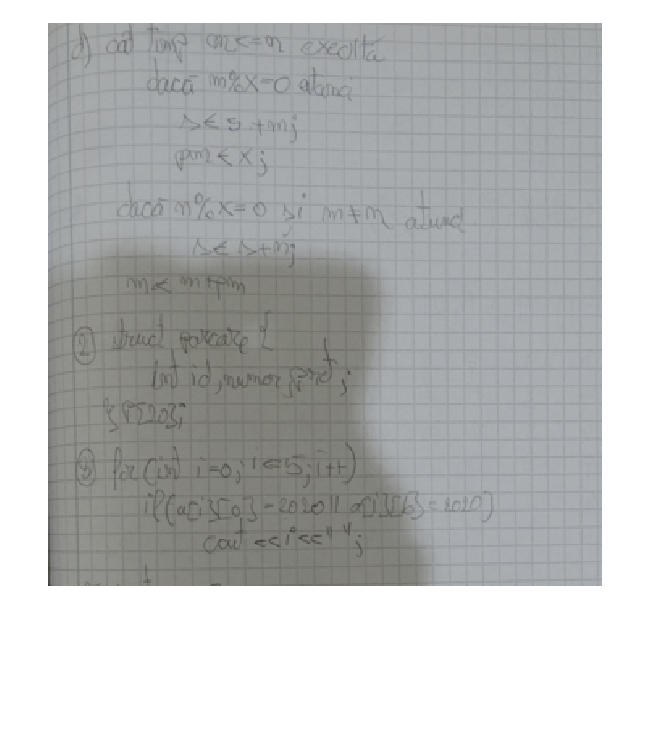 d) cât timp m<=n execută
dacă m%x=0 atunci
s←s+m;
pm←x;
dacă n%x=0 și m≠n atunci
s←s+n;
m← m+pm
② struct parcare {
int id, numar, pret;
} P[20];
③ for(int i=0; i<=5; i++)
if(a[i][0]=2020 || a[i][6]=2020)
cout <<i<<" ";